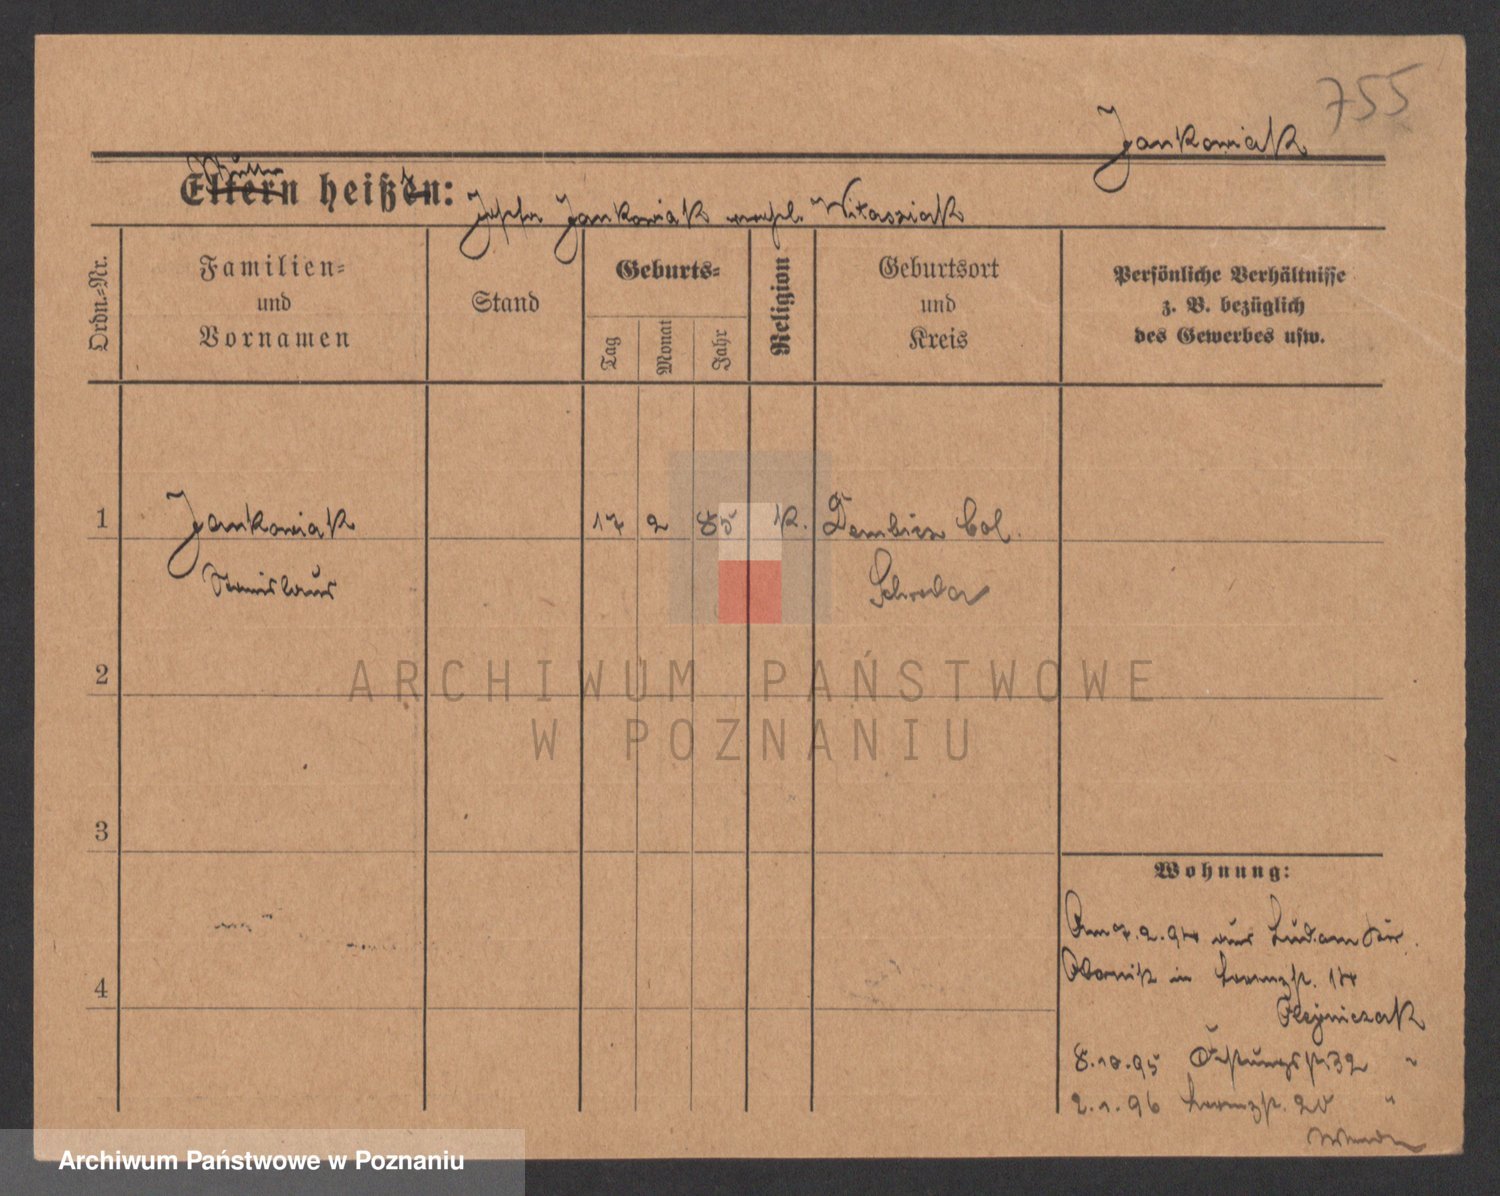 755
Jankowiak
Mutter
Eltern heißen:
Josefa Jankowiak verehl. Witasziak
Ordn.-Nr.
Familien-
und
Vornamen
Stand
Geburts-
Tag
Monat
Jahr
Religion
Geburtsort
und
Kreis
Persönliche Verhältnisse
z. B. bezüglich
des Gewerbes usw.
1 Jankowiak 17 2 85 K. Dembicz Col.
Stanislaus Schroda
2
ARCHIWUM PAŃSTWOWE
W POZNANIU
3
Wohnung:
Am 7.2.94 aus Ludom Kr.
4
Obornik in 14
Olejniczak
8.10.95 32 "
2.1.96 20 "
Wenden
Archiwum Państwowe w Poznaniu